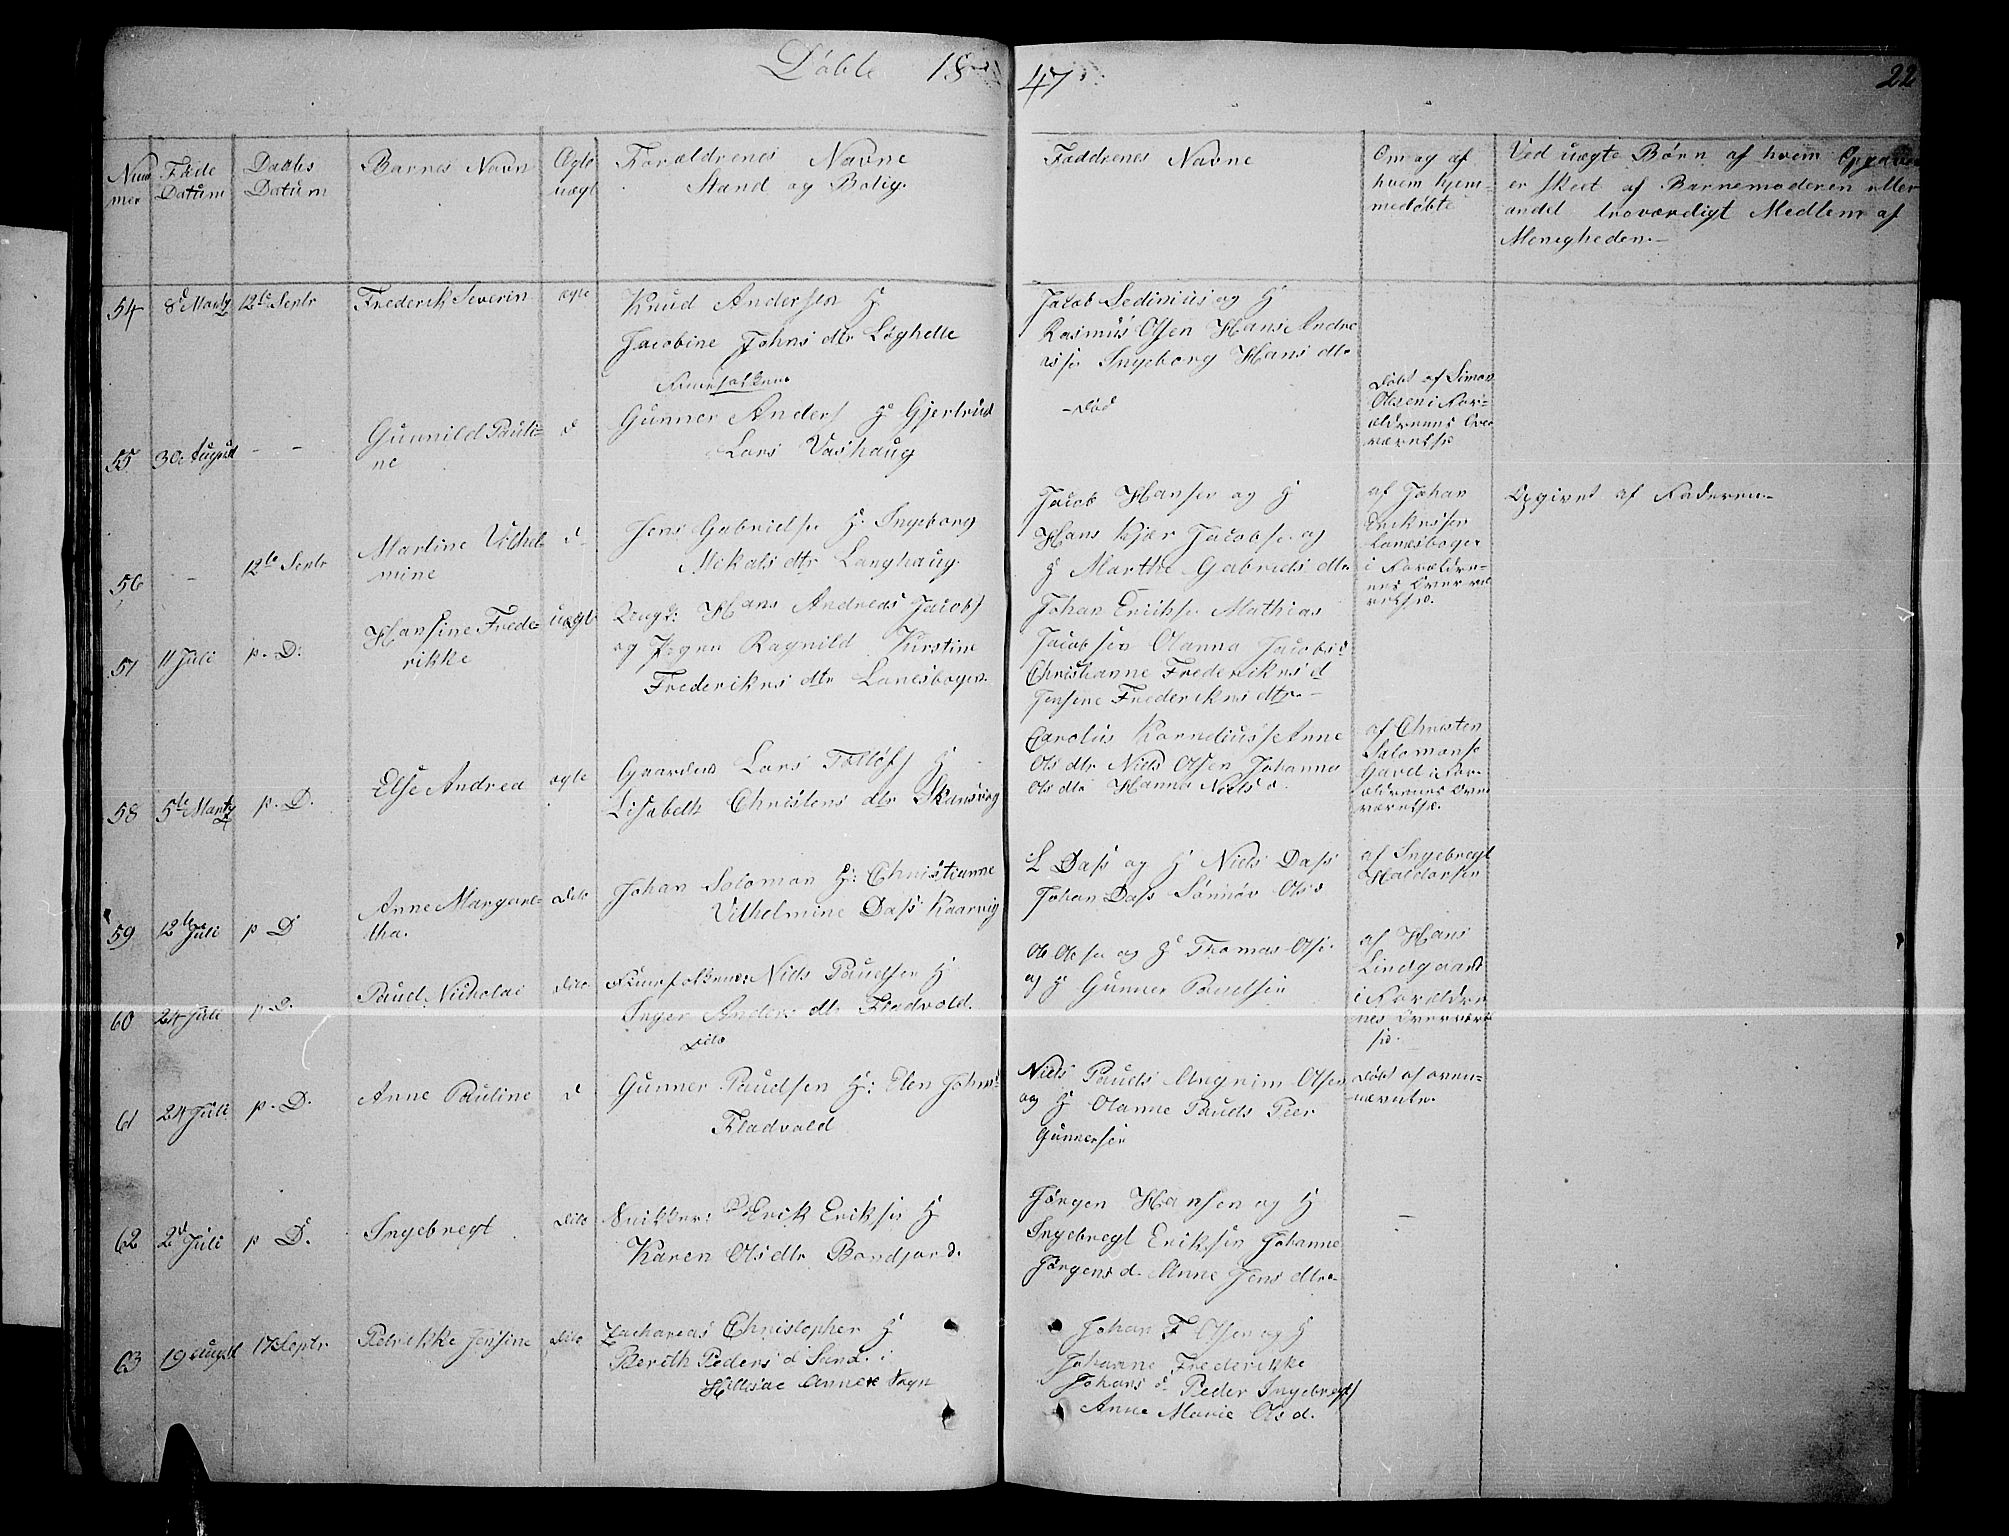 Døbte 18
47
22
Num
mer
Føde
Datum
Daabs
Datum
Barnes Navn
Ægte
uægt
Forældrenes Navne
Stand og Bolig.
Faddrenes Navne
Om og af
hvem hjem-
medøbte
Ved uægte Børn af hvem Opgaven
er skeet af Barnemoderen eller
andet troværdigt Medlem af
Menigheden.-
54 8de Martz 12te Septr Frederik Severin ægte
Knud Andersen H
Jacobine Johns dtr Løghelle
Jacob Sedinius og H
Rasmus Olsen Hans Andre
Ingeborg Hans dtr
55 30 August - - Gunnild Pauli-
ne
d
Gunner Anders H Gjertrud
Lars Vashaug
-død
Døbt af Simon
Olsen i For-
ældrenes Over
værelse
56 - 12te Septr Martine Vilhel-
mine
d
Jens Gabrielse H. Ingeborg
Mikals dtr Langhaug.
Jacob Hansen og H
Hans Kjær Jacobse og
H Marthe Gabriels dtr
af Johan
Erikssen
Lanesbogen
i Forældre-
nes Overvæ
relse.
Opgivet af Faderen.-
57 11 Juli p. D. Hansine Frede-
rikke
uægt
Ungk: Hans Andreas Jacobs
og Pigen Ragnild Kirstine
Frederiks dtr Lanesbogen.
Johan Erikse Mathias
Jacobsen Olanna Jacobs
Christianne Frederiks d
Jensine Frederiks dtr.-
58 5te Martz p. D. Else Andrea ægte
Gaardm Lars Tolløfs H
Lisabeth Christens dtr Skansvog
Carolus Korneliuss Anne
Ols dtr Niels Olsen Johanna
Ols dtr Hanna Niels d.
af Christen
Salomonse
Hard i For-
ældrenes Over
værelse.
59 12te Juli p D Anne Margare-
tha.
Dito
Johan Solomon H: Christianne
Vilhelmine Dass Kaarvig
L Dass og H Niels Dass
Johan Dass Sønnøv Ols
af Ingebregt
Haldorsen
60 24 Juli p. D. Paul Nicholai Dito
Huusfolkene: Niels Paulsen H
Inger Anders dtr Fladvold.
Dito
Ole Olsen og H Thomas Olse
og H Gunner Paulsen
af Hans
Lindgaard
i Forældre
nes Overværel
se.
61 24 Juli p. D. Anne Pauline d
Gunner Paulsen H: Elen Johns
Fladvold
Niels Pauls Angrim Olsen
og H Olanne Pauls Peer
Gunnersen
Døbt af oven-
nævnte.
62 2d Juli p D. Ingebregt Dito
Snikker: Erik Erikse H
Karen Ols dtr Bondjord.
Jørgen Hansen og H
Ingebregt Eriksen Johanne
Jørgens d. Anne Jens dtr
-
63 19 August 17 Septr Petrikke Jensine Dito
Zacharias Christopher H
Berith Peders d Sand i
Hillesøe Annex Sogn
Johan F Olsen og H
Johanne Frederikke
Johans d Peder Ingebregts
Anne Marie Ols d.